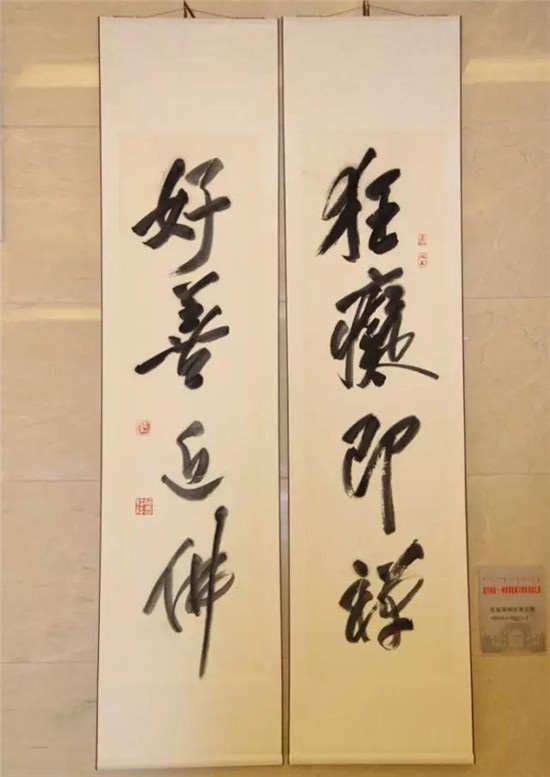 狂癡即禪
好善近佛